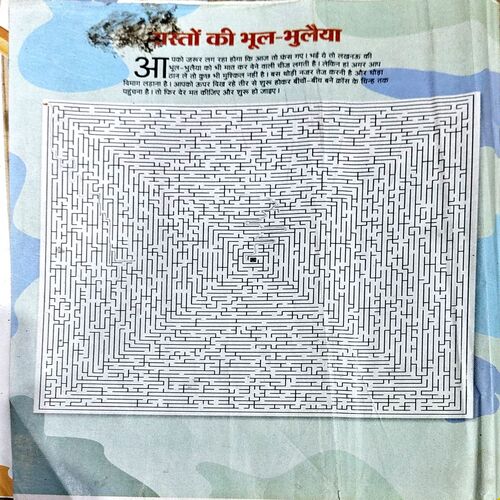 रास्तों की भूल-भुलैया
आपको जरूर लग रहा होगा कि आज तो फंस गए। भई ये तो लखनऊ की
भूल-भुलैया को भी मात कर देने वाली चीज लगती है। लेकिन हां अगर आप
ठान ले तो कुछ भी मुश्किल नहीं है। बस थोड़ी नजर तेज करनी है और थोड़ा
दिमाग लड़ाना है। आपको ऊपर दिख रहे तीर से शुरू होकर बीचों-बीच बने क्रॉस के चिन्ह तक
पहुंचना है। तो फिर देर मत कीजिए और शुरू हो जाइए।